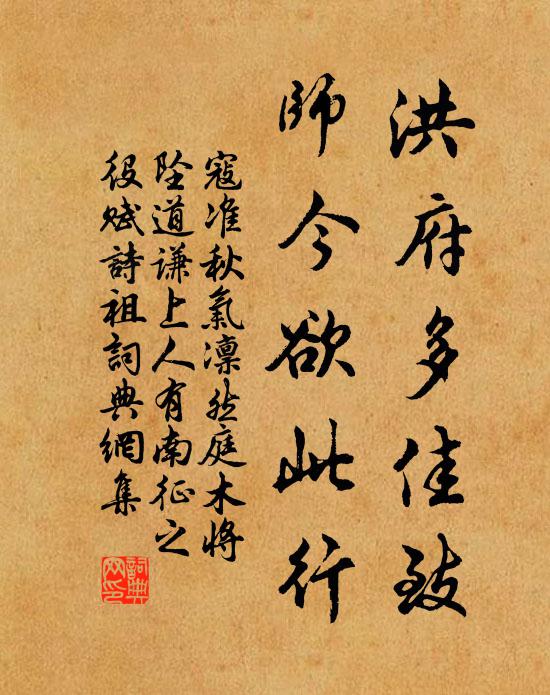 洪府多佳致
師今欲此行
寇准秋氣凛然庭木將
墜道謙上人有南征之
役賦詩祖詞典網集
詞典网印